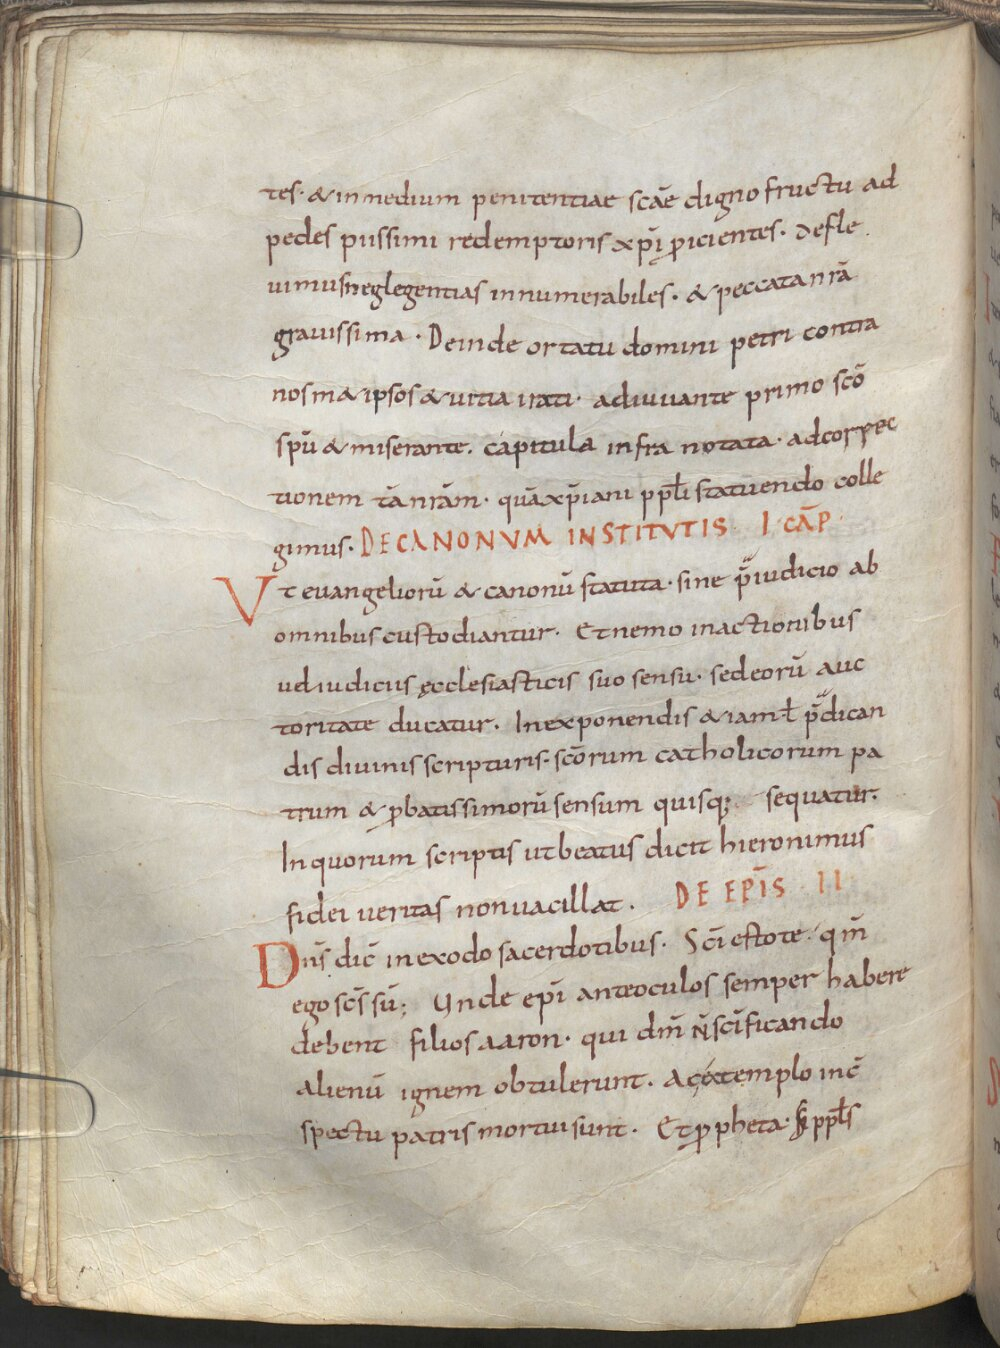 tes· & in medium penitentiae scāe digno fructu ad
pedes piissimi redemptoris xp̄i ꝓicientes· defle
uimus neglegentias innumerabiles· & peccata nrā
grauissima· Deinde ortatu domini petri contra
nosm&ipsos & uitia irati· adiuuante primo scō
spū & miserante. capitula infra notata· ad correc
tionem tā nrām· quā xp̄iani pplī statuendo colle
gimus· DE CANONVM INSTITVTIS I CĀP·
Vt euangeliorū & canonū statuta· sine p̄iudicio ab
omnibus custodiantur· Et nemo in actionibus
uel iudiciis ęcclesiasticis suo sensu· sed eorū auc
toritate ducatur· In exponendis & iam ł p̄dican
dis diuinis scripturis· scōrum catholicorum pa
trum & ꝓbatissimorū sensum quisq; sequatur.
In quorum scriptis ut beatus dicit hieronimus
fidei ueritas non uacillat. DE EPĪS II
Dn̄s dic̄ in exodo sacerdotibus· Scī estote· qm̄
ego scs̄ sū; Unde epī ante oculos semper habere
debent filios aaron· qui dm̄ n̄ scīficando
alienū ignem obtulerunt. Ac extemplo in c̄
spectu patris mortui sunt. Et ꝓpheta· ppls̄